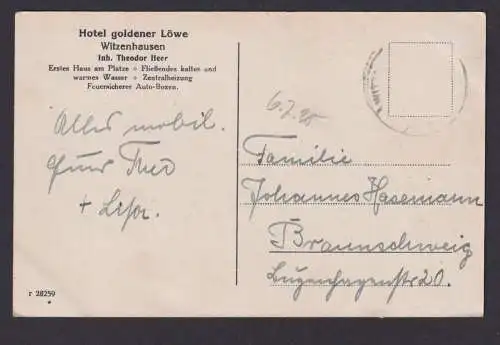 Hotel goldener Löwe
Witzenhausen
Inh. Theodor Heer
Erstes Haus am Platze + Fließendes kaltes und
warmes Wasser + Zentralheizung
Feuersicherer Auto-Boxen.
Alles mobil.
Theo
+ Lisa.
r 28259
Familie
Johannes Hasemann
Braunschweig
Bugenhagenstr 20.